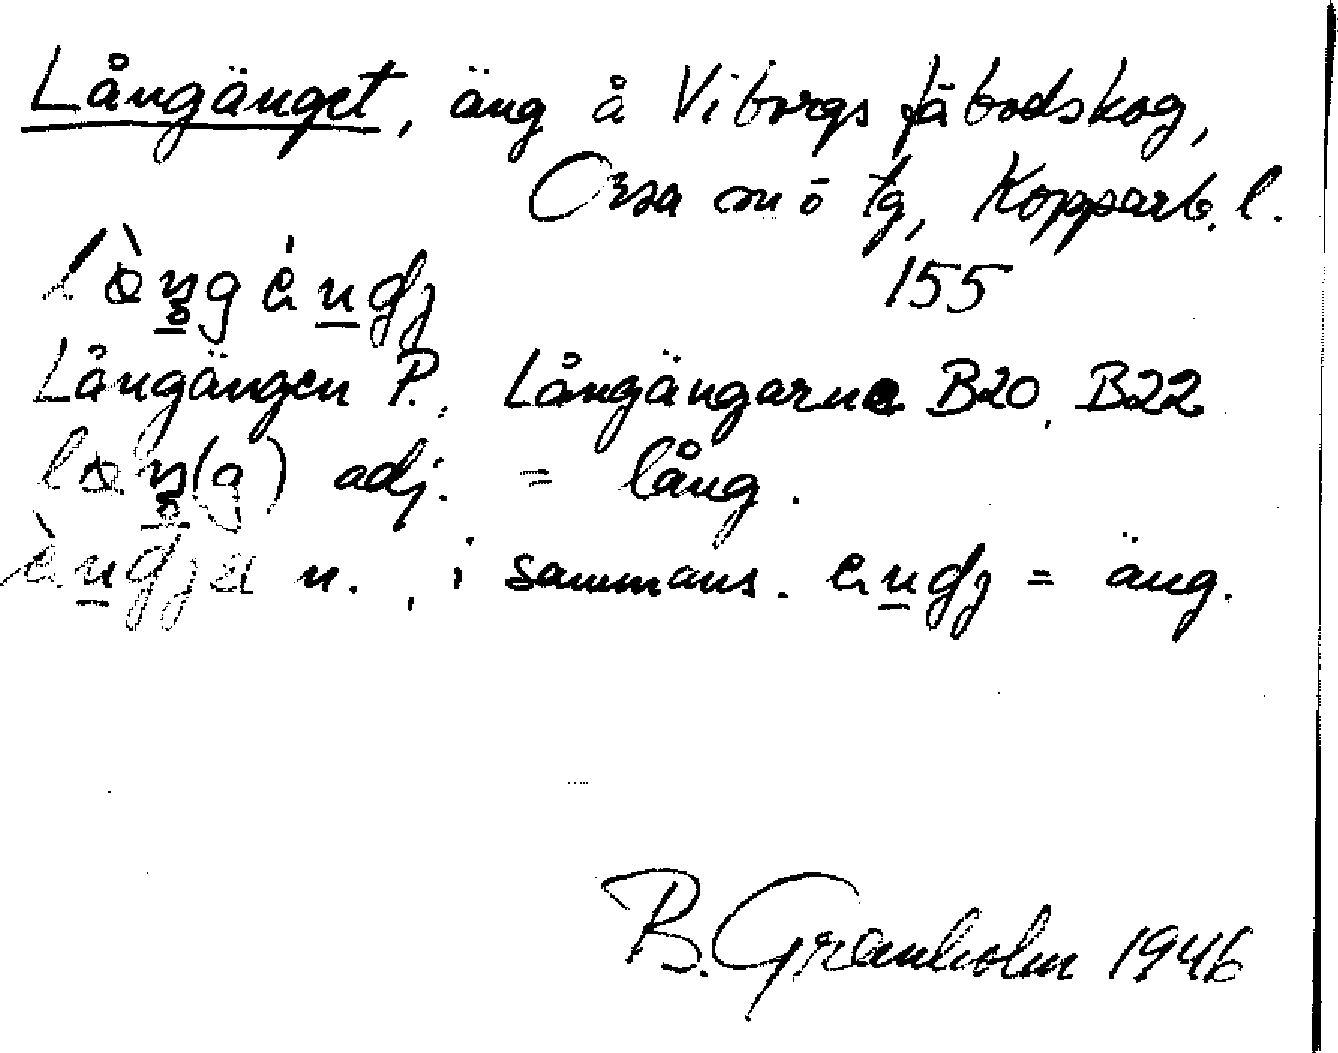 Långänget, äng å Viborgs fäbodskog,
Orsa sn ö tg, Kopparb. l.
155
Långängen P., Långängarna B20, B22
adj. = lång.
n., i sammans. = äng.
B. Granholm 1946